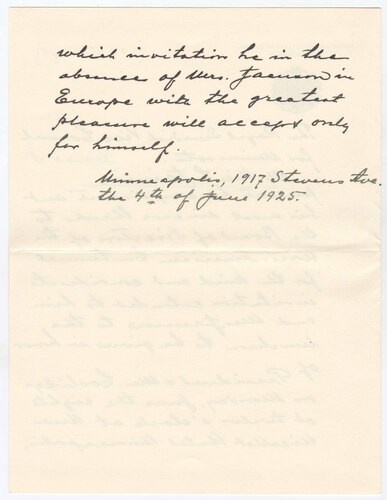 which invitation he in the
absence of Mrs. Jaenson in
Europe with the greatest
pleasure will accept only
for himself.
Minneapolis, 1917 Stevens Ave.
the 4th of June 1925.